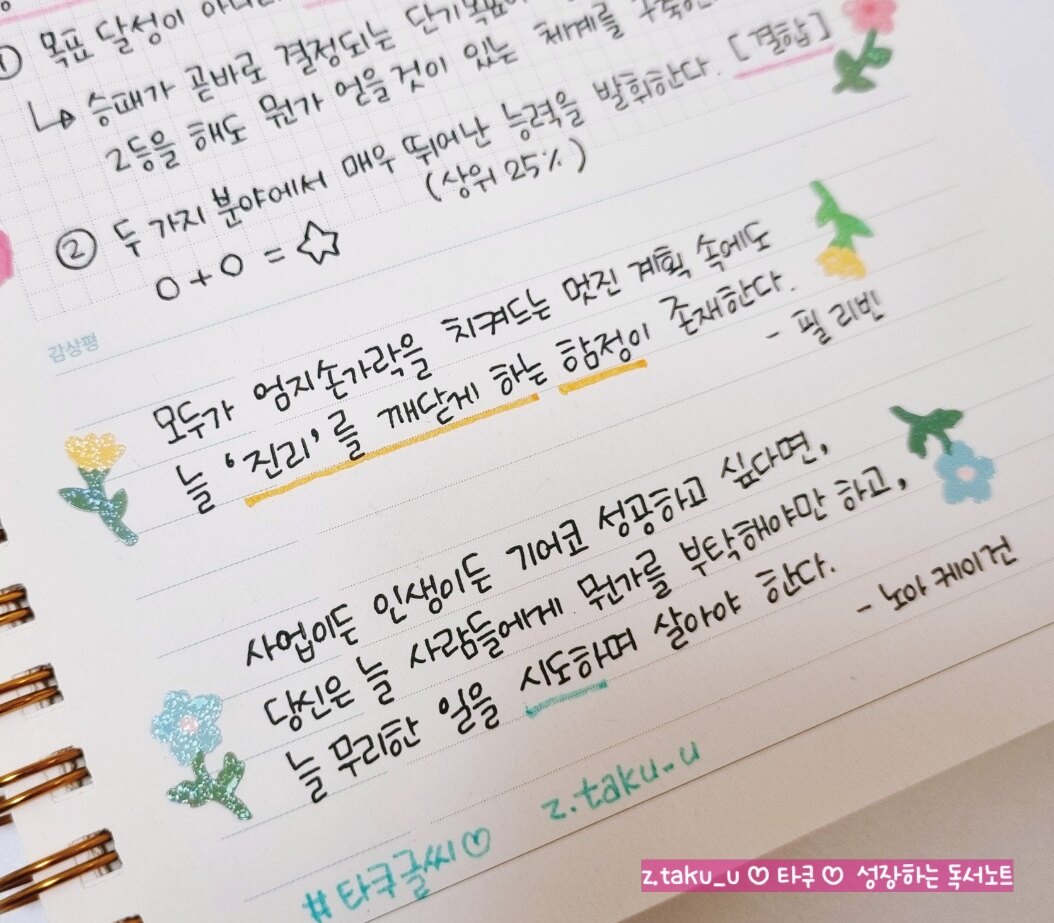 ① 목표 달성이 아니라
↳ 승패가 곧바로 결정되는 단기목표
2등을 해도 뭔가 얻을 것이 있는 체계를 구축한
② 두 가지 분야에서 매우 뛰어난 능력을 발휘한다. [결합]
(상위 25%)
○ + ○ = ☆
감상평
모두가 엄지손가락을 치켜드는 멋진 계획 속에도
늘 '진리'를 깨닫게 하는 함정이 존재한다.
- 필 리빈
사업이든 인생이든 기어코 성공하고 싶다면,
당신은 늘 사람들에게 뭔가를 부탁해야만 하고,
늘 무리한 일을 시도하며 살아야 한다.
- 노아 케이건
#타쿠글씨♡ z.taku_u
z.taku_u ♡ 타쿠 ♡ 성장하는 독서노트